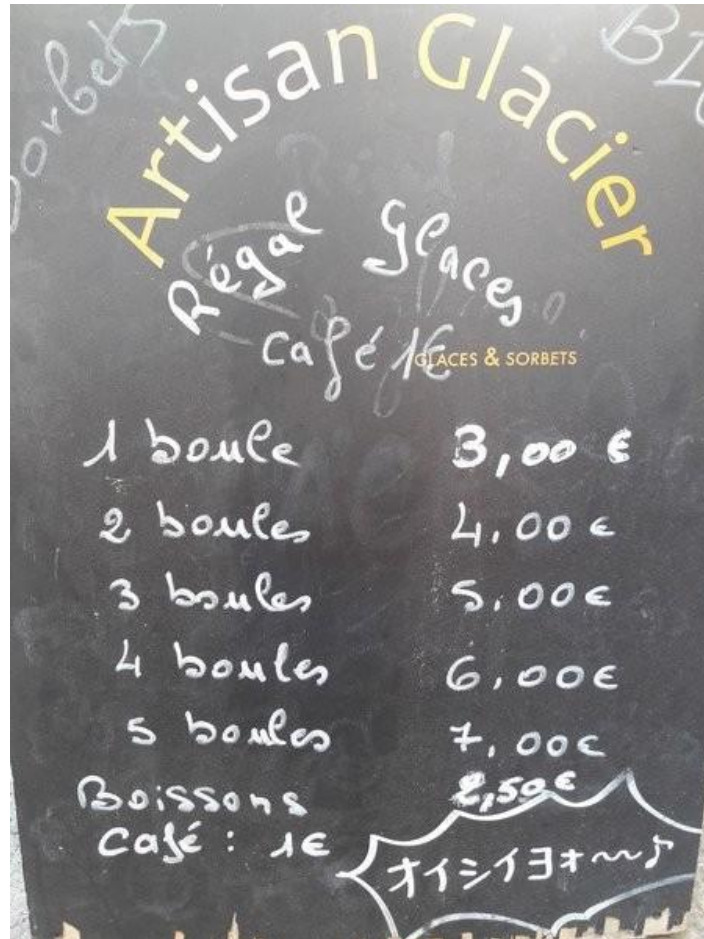 Sorbets
BIO
Artisan Glacier
Régal Glaces
Café 1€
GLACES & SORBETS
1 boule 3,00 €
2 boules 4,00 €
3 boules 5,00 €
4 boules 6,00 €
5 boules 7,00 €
Boissons 2,50 €
Café : 1€
オイシイヨォ〜♪